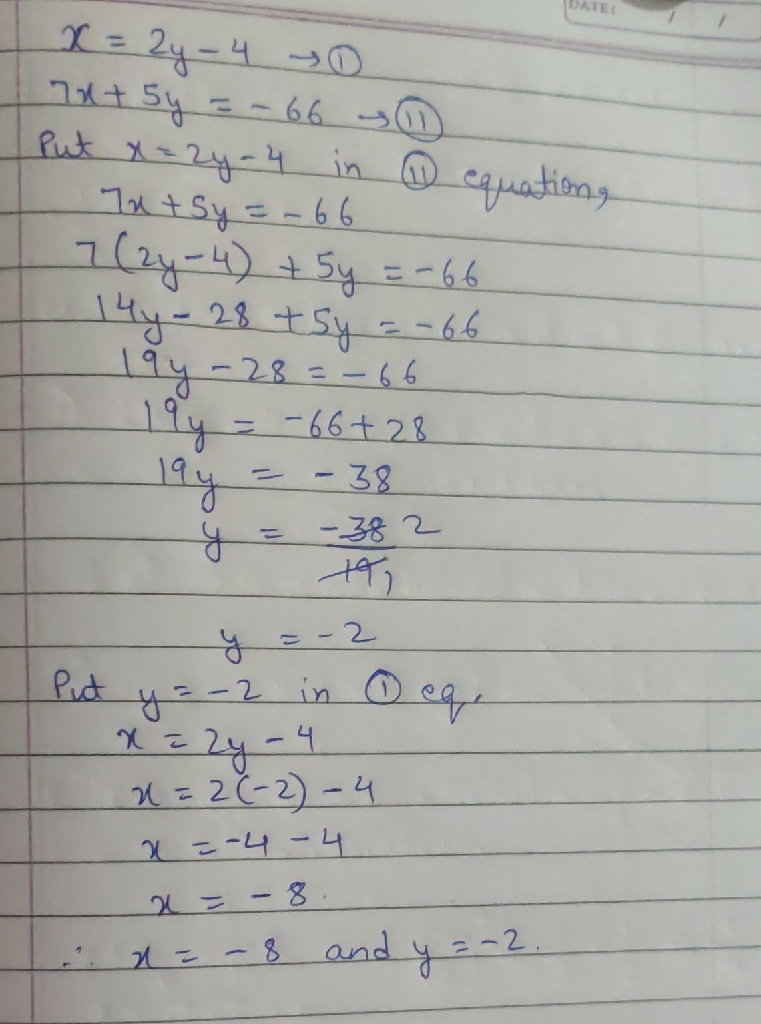 DATE: / /
x = 2y - 4 → ①
7x + 5y = - 66 → ⑪
Put x = 2y - 4 in ⑪ equation,
7x + 5y = - 66
7 (2y - 4) + 5y = - 66
14y - 28 + 5y = - 66
19y - 28 = - 66
19y = - 66 + 28
19y = - 38
y = - 38 2
19 1
y = - 2
Put y = - 2 in ① eq.
x = 2y - 4
x = 2(-2) - 4
x = - 4 - 4
x = - 8.
∴ x = - 8 and y = - 2.